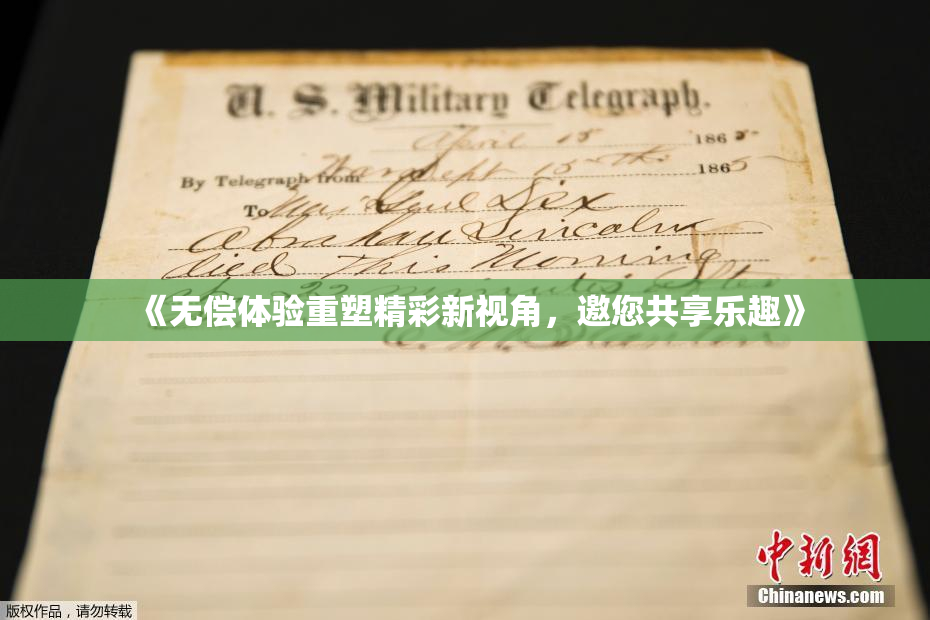 U. S. Military Telegraph.
April 15 1865
By Telegraph from Wash Sept 15th 1865
To Maj Genl Dix
Abraham Lincoln
died This Morning
at 22 minutes after
《无偿体验重塑精彩新视角，邀您共享乐趣》
中新网
Chinanews.com
版权作品，请勿转载